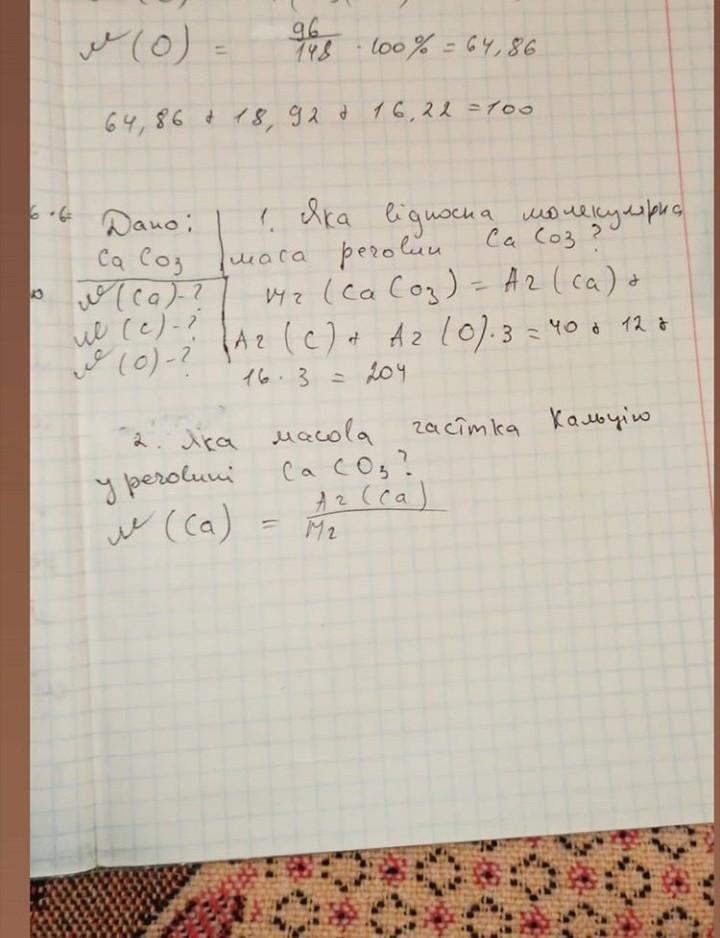 w(O) = 96/148 · 100% = 64,86
64,86 + 18,92 + 16,22 = 100
Дано:
CaCO3
w(Ca)-?
w(C)-?
w(O)-?
1. Яка відносна молекулярна
маса речовин CaCO3?
Mr(CaCO3) = Ar(Ca) +
Ar(C) + Ar(O)·3 = 40 + 12 +
16 · 3 = 204
2. Яка масова частка Кальцію
у речовині CaCO3?
w(Ca) = Ar(Ca)/Mr